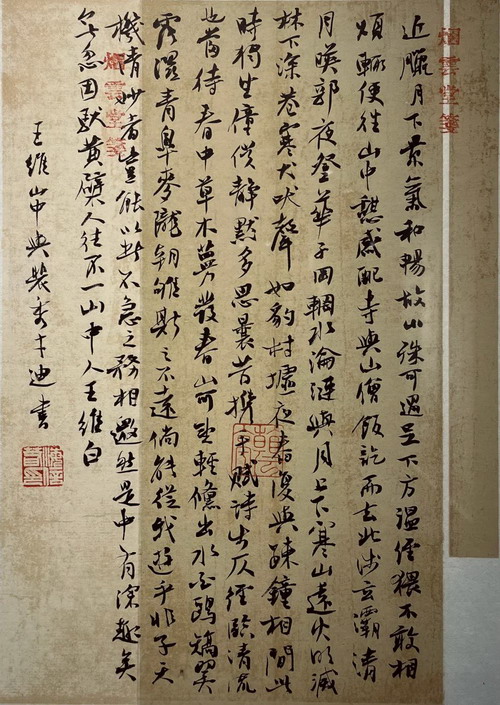 近臘月下景氣和暢故山殊可過足下方溫經猥不敢相
煩輒便往山中憩感配寺與山僧飯訖而去北涉玄灞清
月映郭夜登華子岡輞水淪漣與月上下寒山遠火明滅
林下深巷寒犬吠聲如豹村墟夜舂復與疎鐘相間此
時獨坐僮僕靜默多思曩昔携手賦詩步仄徑臨清流
也當待春中草木蔓發春山可望輕鯈出水白鷗矯翼
露濕青皋麥隴朝雊斯之不遠倘能從我遊乎非子天
機清妙者豈能以此不急之務相邀然是中有深趣矣
無忽因馱黃檗人往不一山中人王維白
王維山中與裴秀才迪書
烟雲堂箋
烟雲堂箋